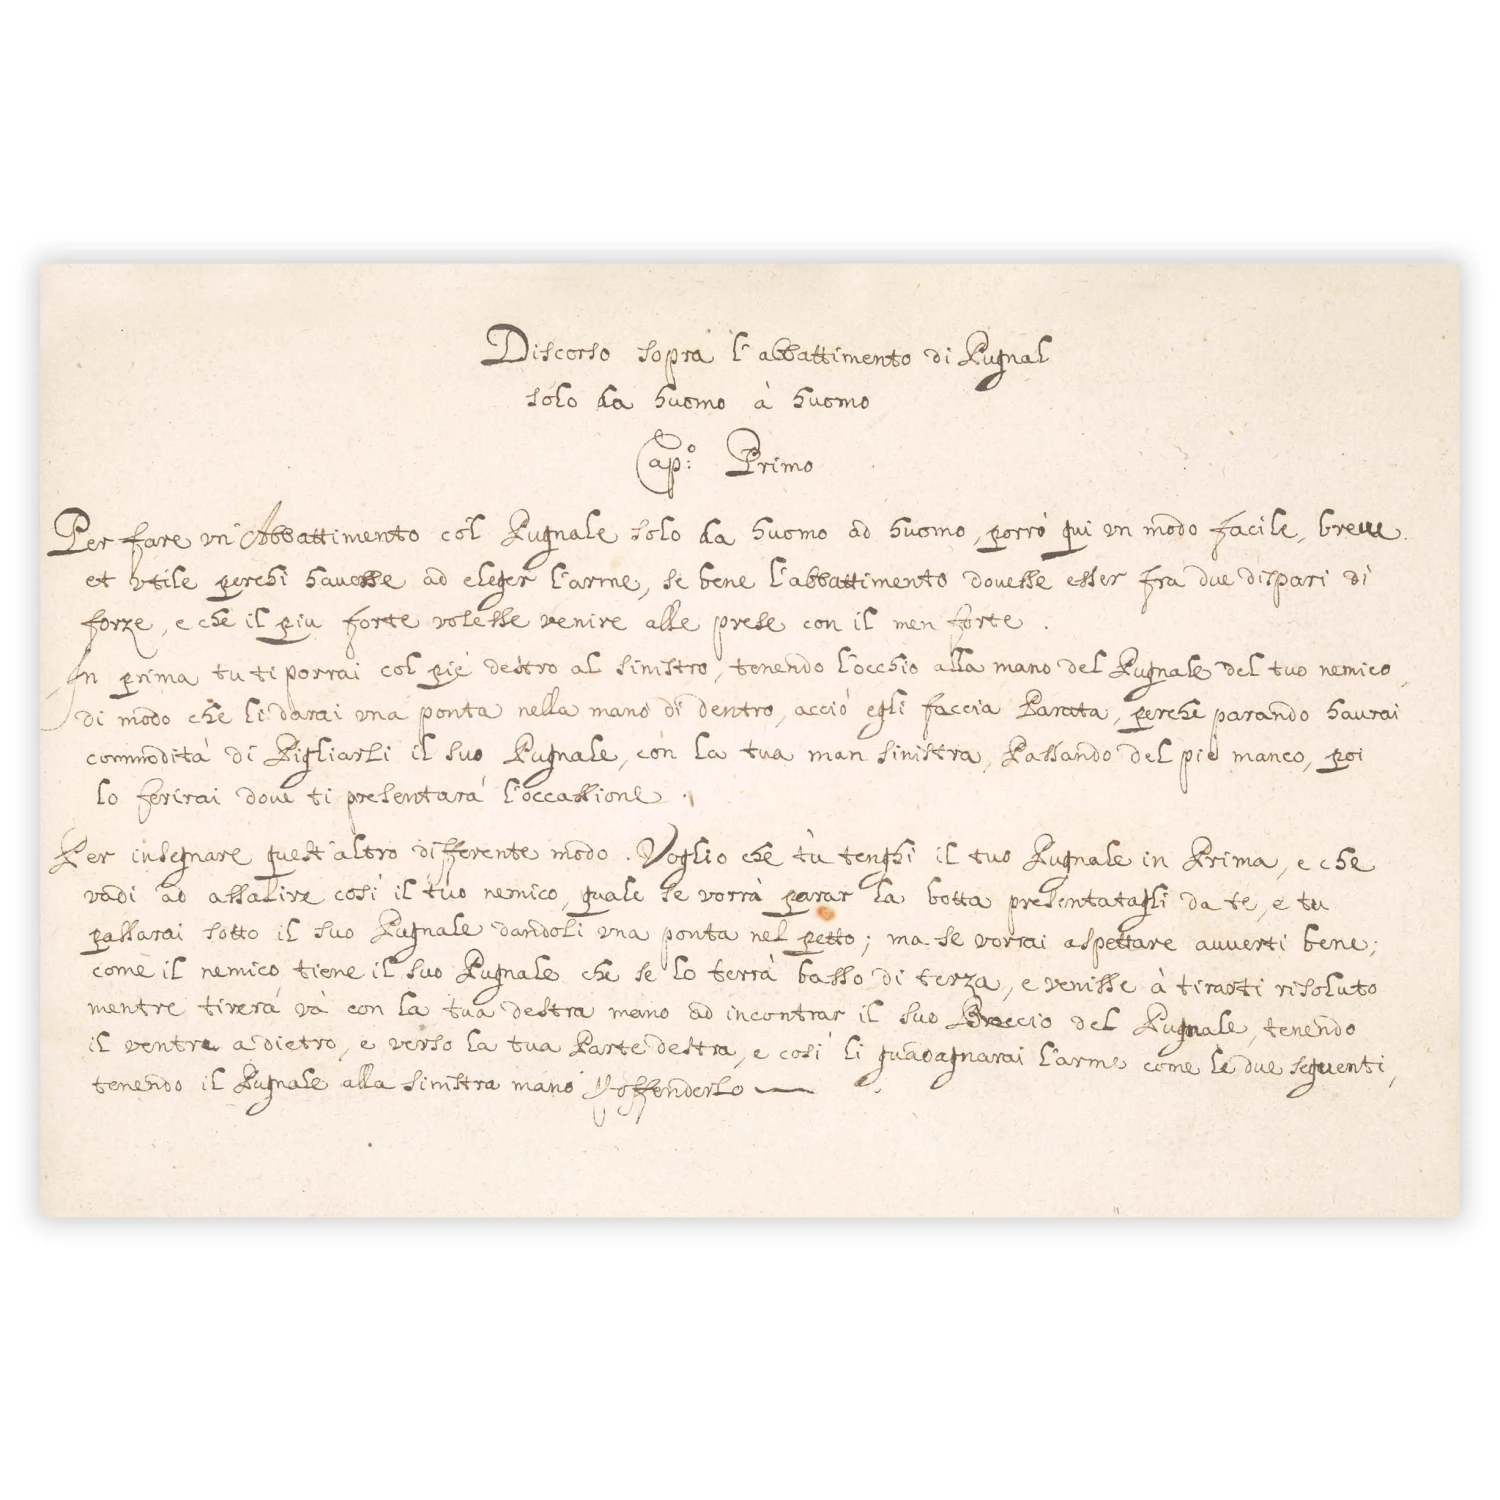 Discorso sopra l'abbattimento di Pugnal
solo da huomo à huomo
Cap:º Primo
Per fare vn'Abbattimento col Pugnale solo da huomo ad huomo, porrò qui vn modo facile, breue
et vtile perchi hauesse ad eleger l'arme, se bene l'abbattimento douesse esser fra due dispari di
forze, e che il piu forte volesse venire alle prese con il men forte.
In prima tu ti porrai col piè destro al sinistro, tenendo l'occhio alla mano del Pugnale del tuo nemico,
di modo che li darai vna ponta nella mano di dentro, acciò egli faccia Parata, perche parando haurai
commodità di Pigliarli il suo Pugnale, con la tua man sinistra, Passando del piè manco, poi
lo ferirai doue ti presentarà l'occassione.
Per insegnare quest'altro differente modo. Voglio che tù tenghi il tuo Pugnale in Prima, e che
vadi ad assalire così il tuo nemico, quale se vorrà parar la botta presentatagli da te, e tu
passarai sotto il suo Pugnale dandoli vna ponta nel petto; ma se vorrai aspettare auuerti bene;
come il nemico tiene il suo Pugnale che se lo terrà basso di terza, e venisse à tirarti risoluto
mentre tirerà và con la tua destra mano ad incontrar il suo Braccio del Pugnale, tenendo
il ventre a dietro, e verso la tua Parte destra, e così li guadagnarai l'arme come le due seguenti,
tenendo il Pugnale alla sinistra mano p offenderlo —